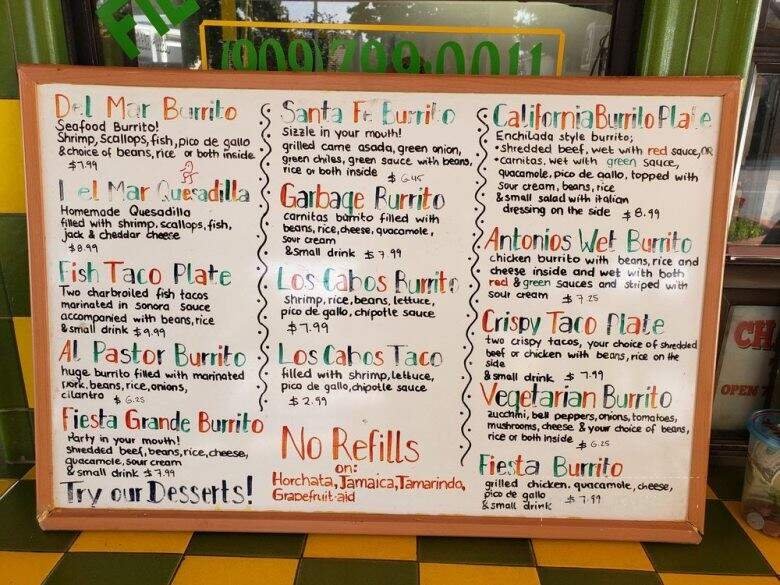 FIE
(909)799-0011
Del Mar Burrito
Seafood Burrito!
Shrimp, Scallops, fish, pico de gallo
& choice of beans, rice or both inside
$7.99
Del Mar Quesadilla
Homemade Quesadilla
filled with shrimp, scallops, fish,
jack & cheddar cheese
$8.99
Fish Taco Plate
Two charbroiled fish tacos
marinated in sonora sauce
accompanied with beans, rice
& small drink $9.99
Al Pastor Burrito
huge burrito filled with marinated
pork, beans, rice, onions,
cilantro $6.25
Fiesta Grande Burrito
Party in your mouth!
Shredded beef, beans, rice, cheese,
guacamole, sour cream
& small drink $7.99
Try our Desserts!
Santa Fe Burrito
Sizzle in your mouth!
grilled carne asada, green onion,
green chiles, green sauce with beans,
rice or both inside $6.45
Garbage Burrito
carnitas burrito filled with
beans, rice, cheese, guacamole,
sour cream
& small drink $7.99
Los Cabos Burrito
shrimp, rice, beans, lettuce,
pico de gallo, chipotle sauce
$7.99
Los Cabos Taco
filled with shrimp, lettuce,
pico de gallo, chipotle sauce
$2.99
No Refills
on:
Horchata, Jamaica, Tamarindo,
Grapefruit-aid
California Burrito Plate
Enchilada style burrito;
•shredded beef, wet with red sauce, OR
•carnitas, wet with green sauce,
guacamole, pico de gallo, topped with
sour cream, beans, rice
& small salad with italian
dressing on the side $8.99
Antonios Wet Burrito
chicken burrito with beans, rice and
cheese inside and wet with both
red & green sauces and striped with
sour cream $7.25
Crispy Taco Plate
two crispy tacos, your choice of shredded
beef or chicken with beans, rice on the
side
& small drink $7.99
Vegetarian Burrito
zucchini, bell peppers, onions, tomatoes,
mushrooms, cheese & your choice of beans,
rice or both inside $6.25
Fiesta Burrito
grilled chicken, guacamole, cheese,
pico de gallo
& small drink $7.99
CH
OPEN